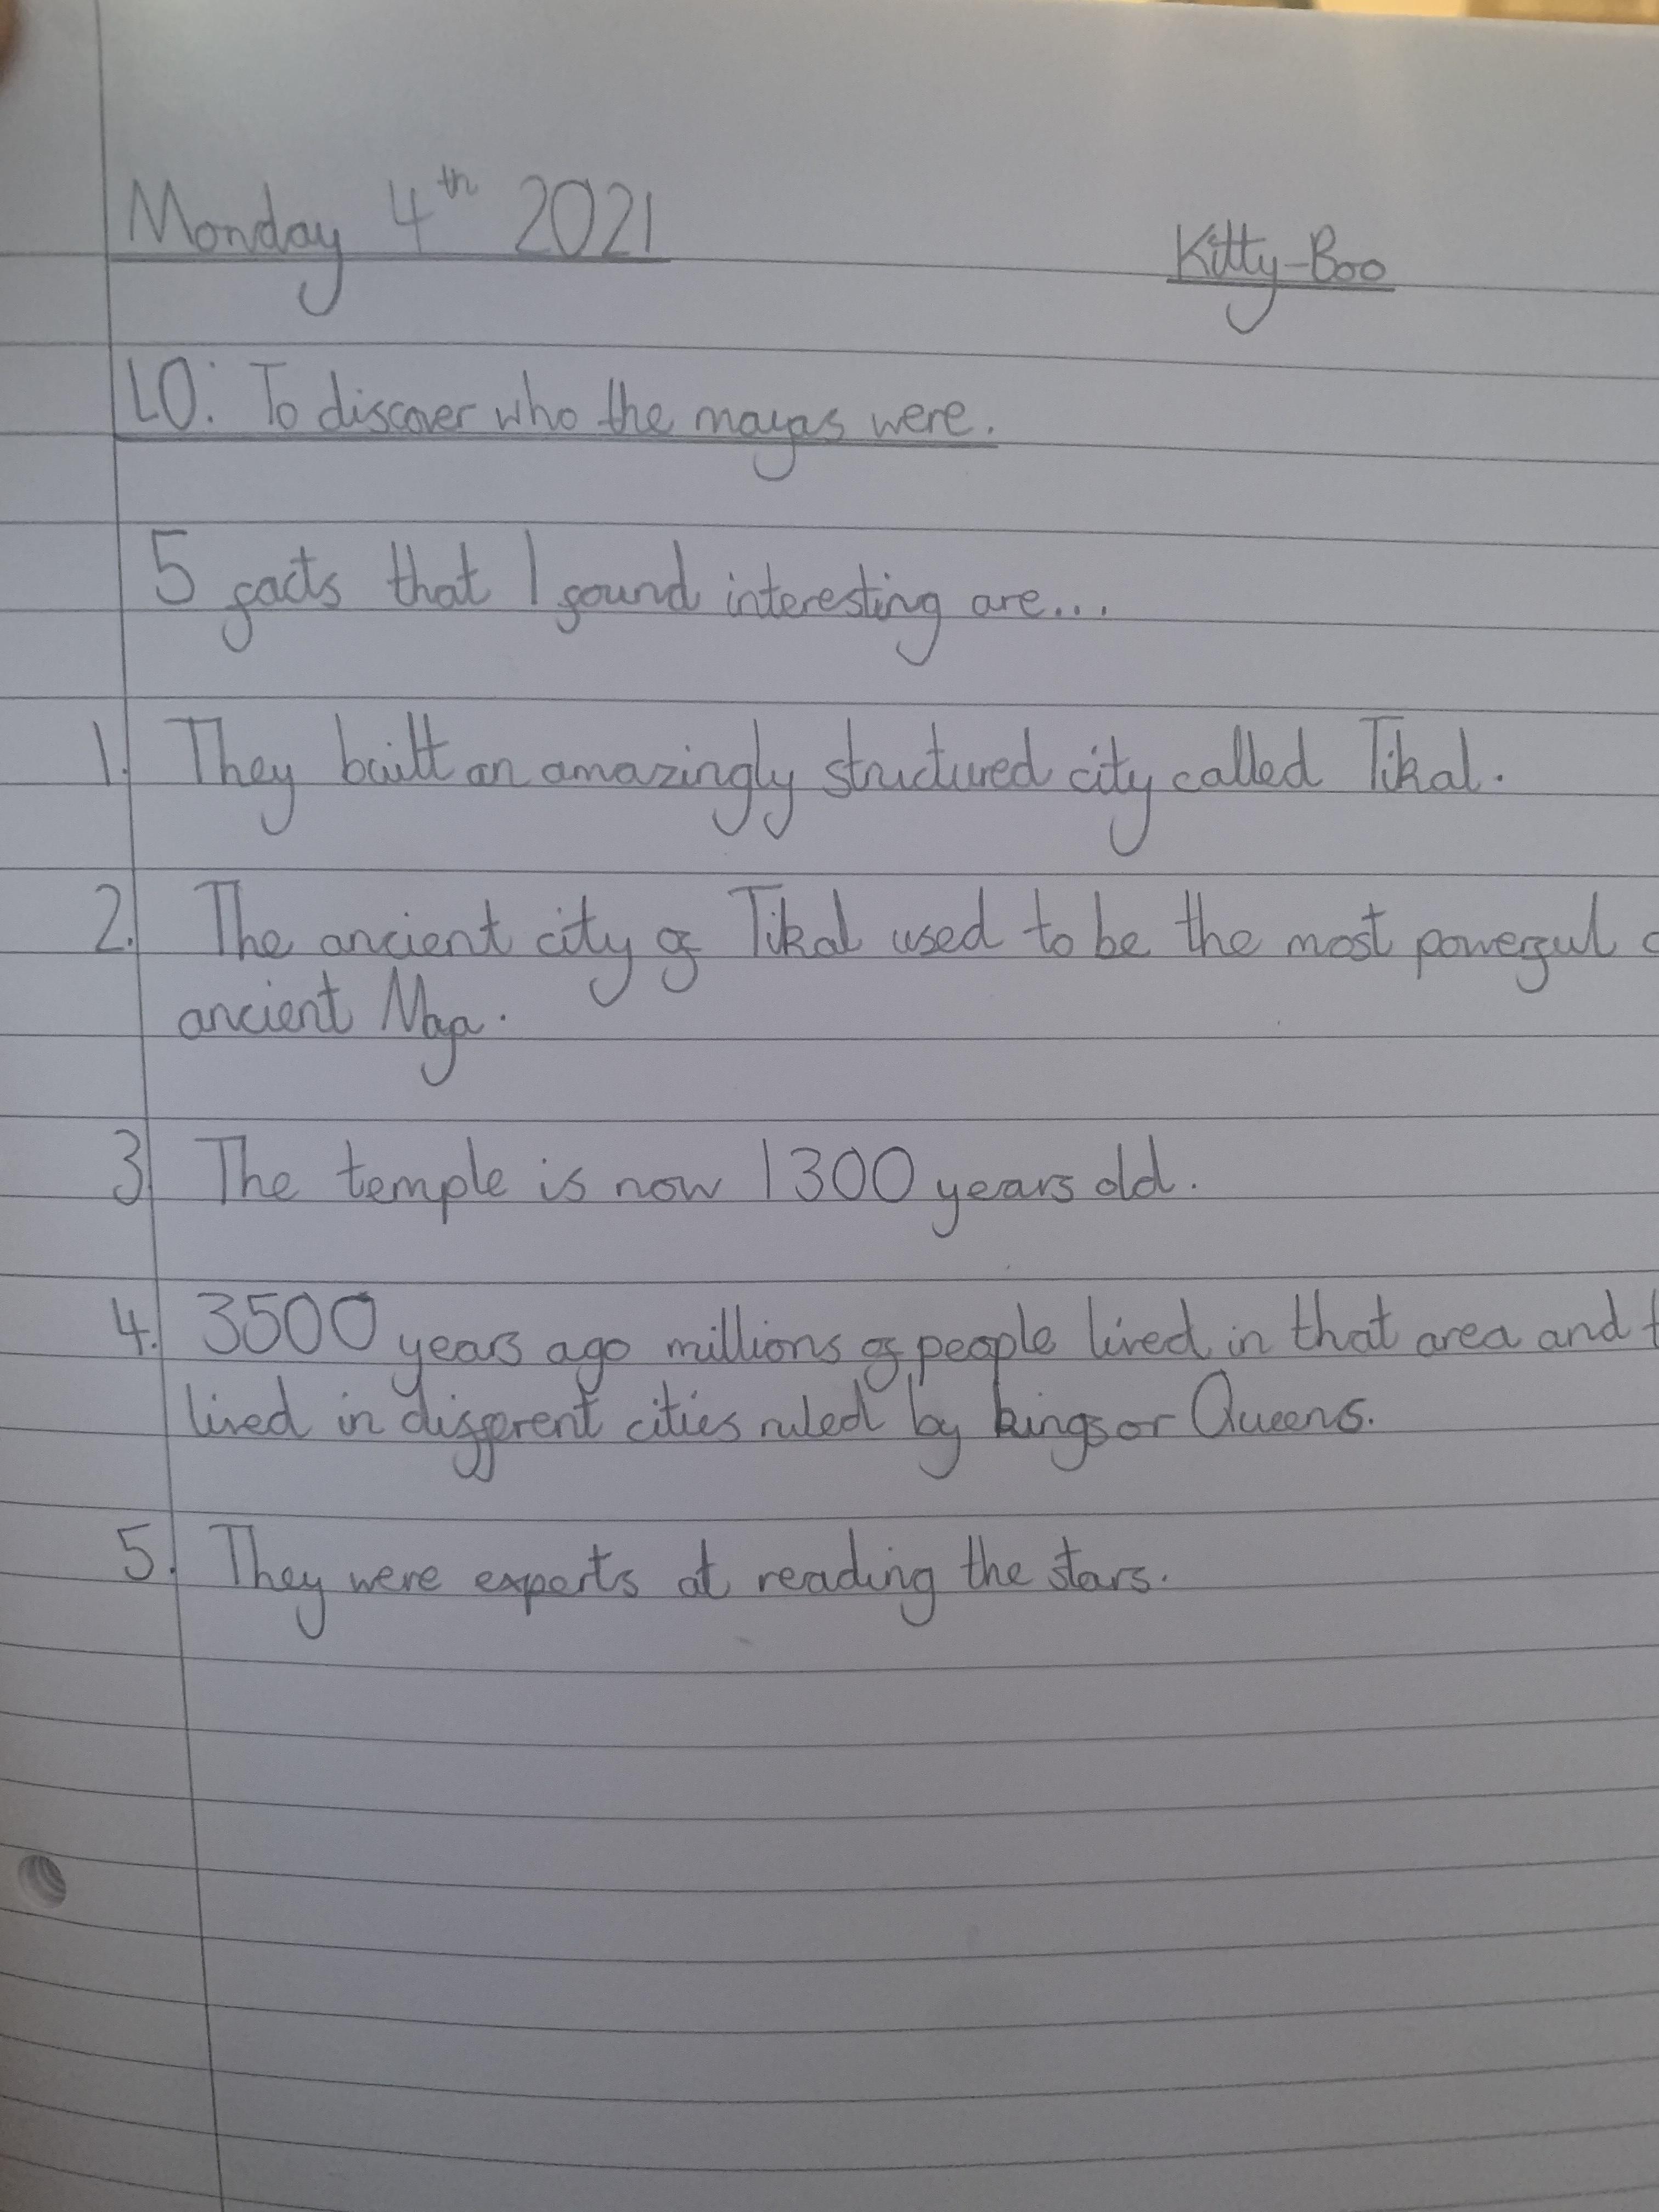 Monday 4th 2021
Kitty-Boo
LO: To discover who the mayas were.
5 facts that I found interesting are...
1. They built an amazingly structured city called Tikal.
2. The ancient city of Tikal used to be the most powerful
ancient Maya.
3. The temple is now 1300 years old.
4. 3500 years ago millions of people lived in that area and
lived in different cities ruled by kings or Queens.
5. They were experts at reading the stars.